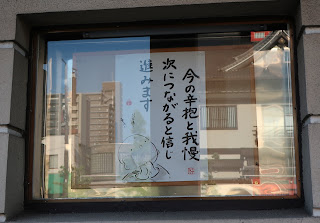 今の辛抱と我慢
次につながると信じ
進みます